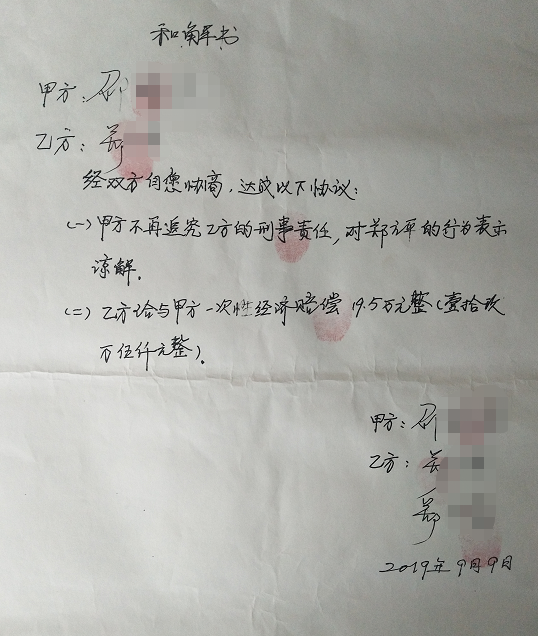 和解书
甲方:
乙方:
经双方自愿协商,达成以下协议:
(一)甲方不再追究乙方的刑事责任,对郑方平的行为表示
谅解.
(二)乙方给与甲方一次性经济赔偿19.5万元整(壹拾玖
万伍仟元整).
甲方:
乙方:
2019年9月9日